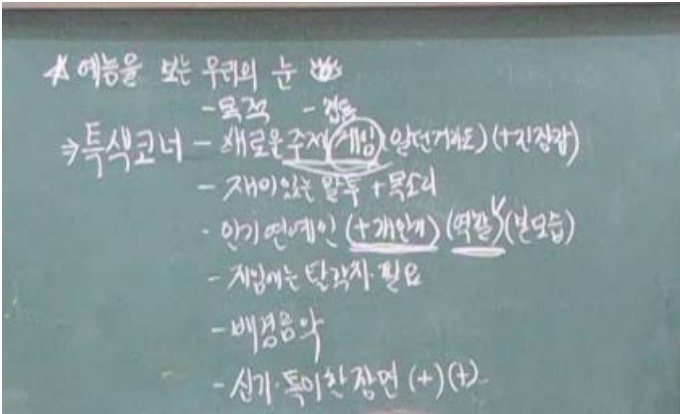 ☆ 예능을 보는 우리의 눈
- 목적 -
⇒ 특색코너 - 새로운 주제 (게임) (알던거라도) (+긴장감)
- 재미있는 말투 + 목소리
- 인기연예인 (+개인기) (역할) (본모습)
- 게임에는 탈락자 필요
- 배경음악
- 신기·독특한 장면 (+)(+)